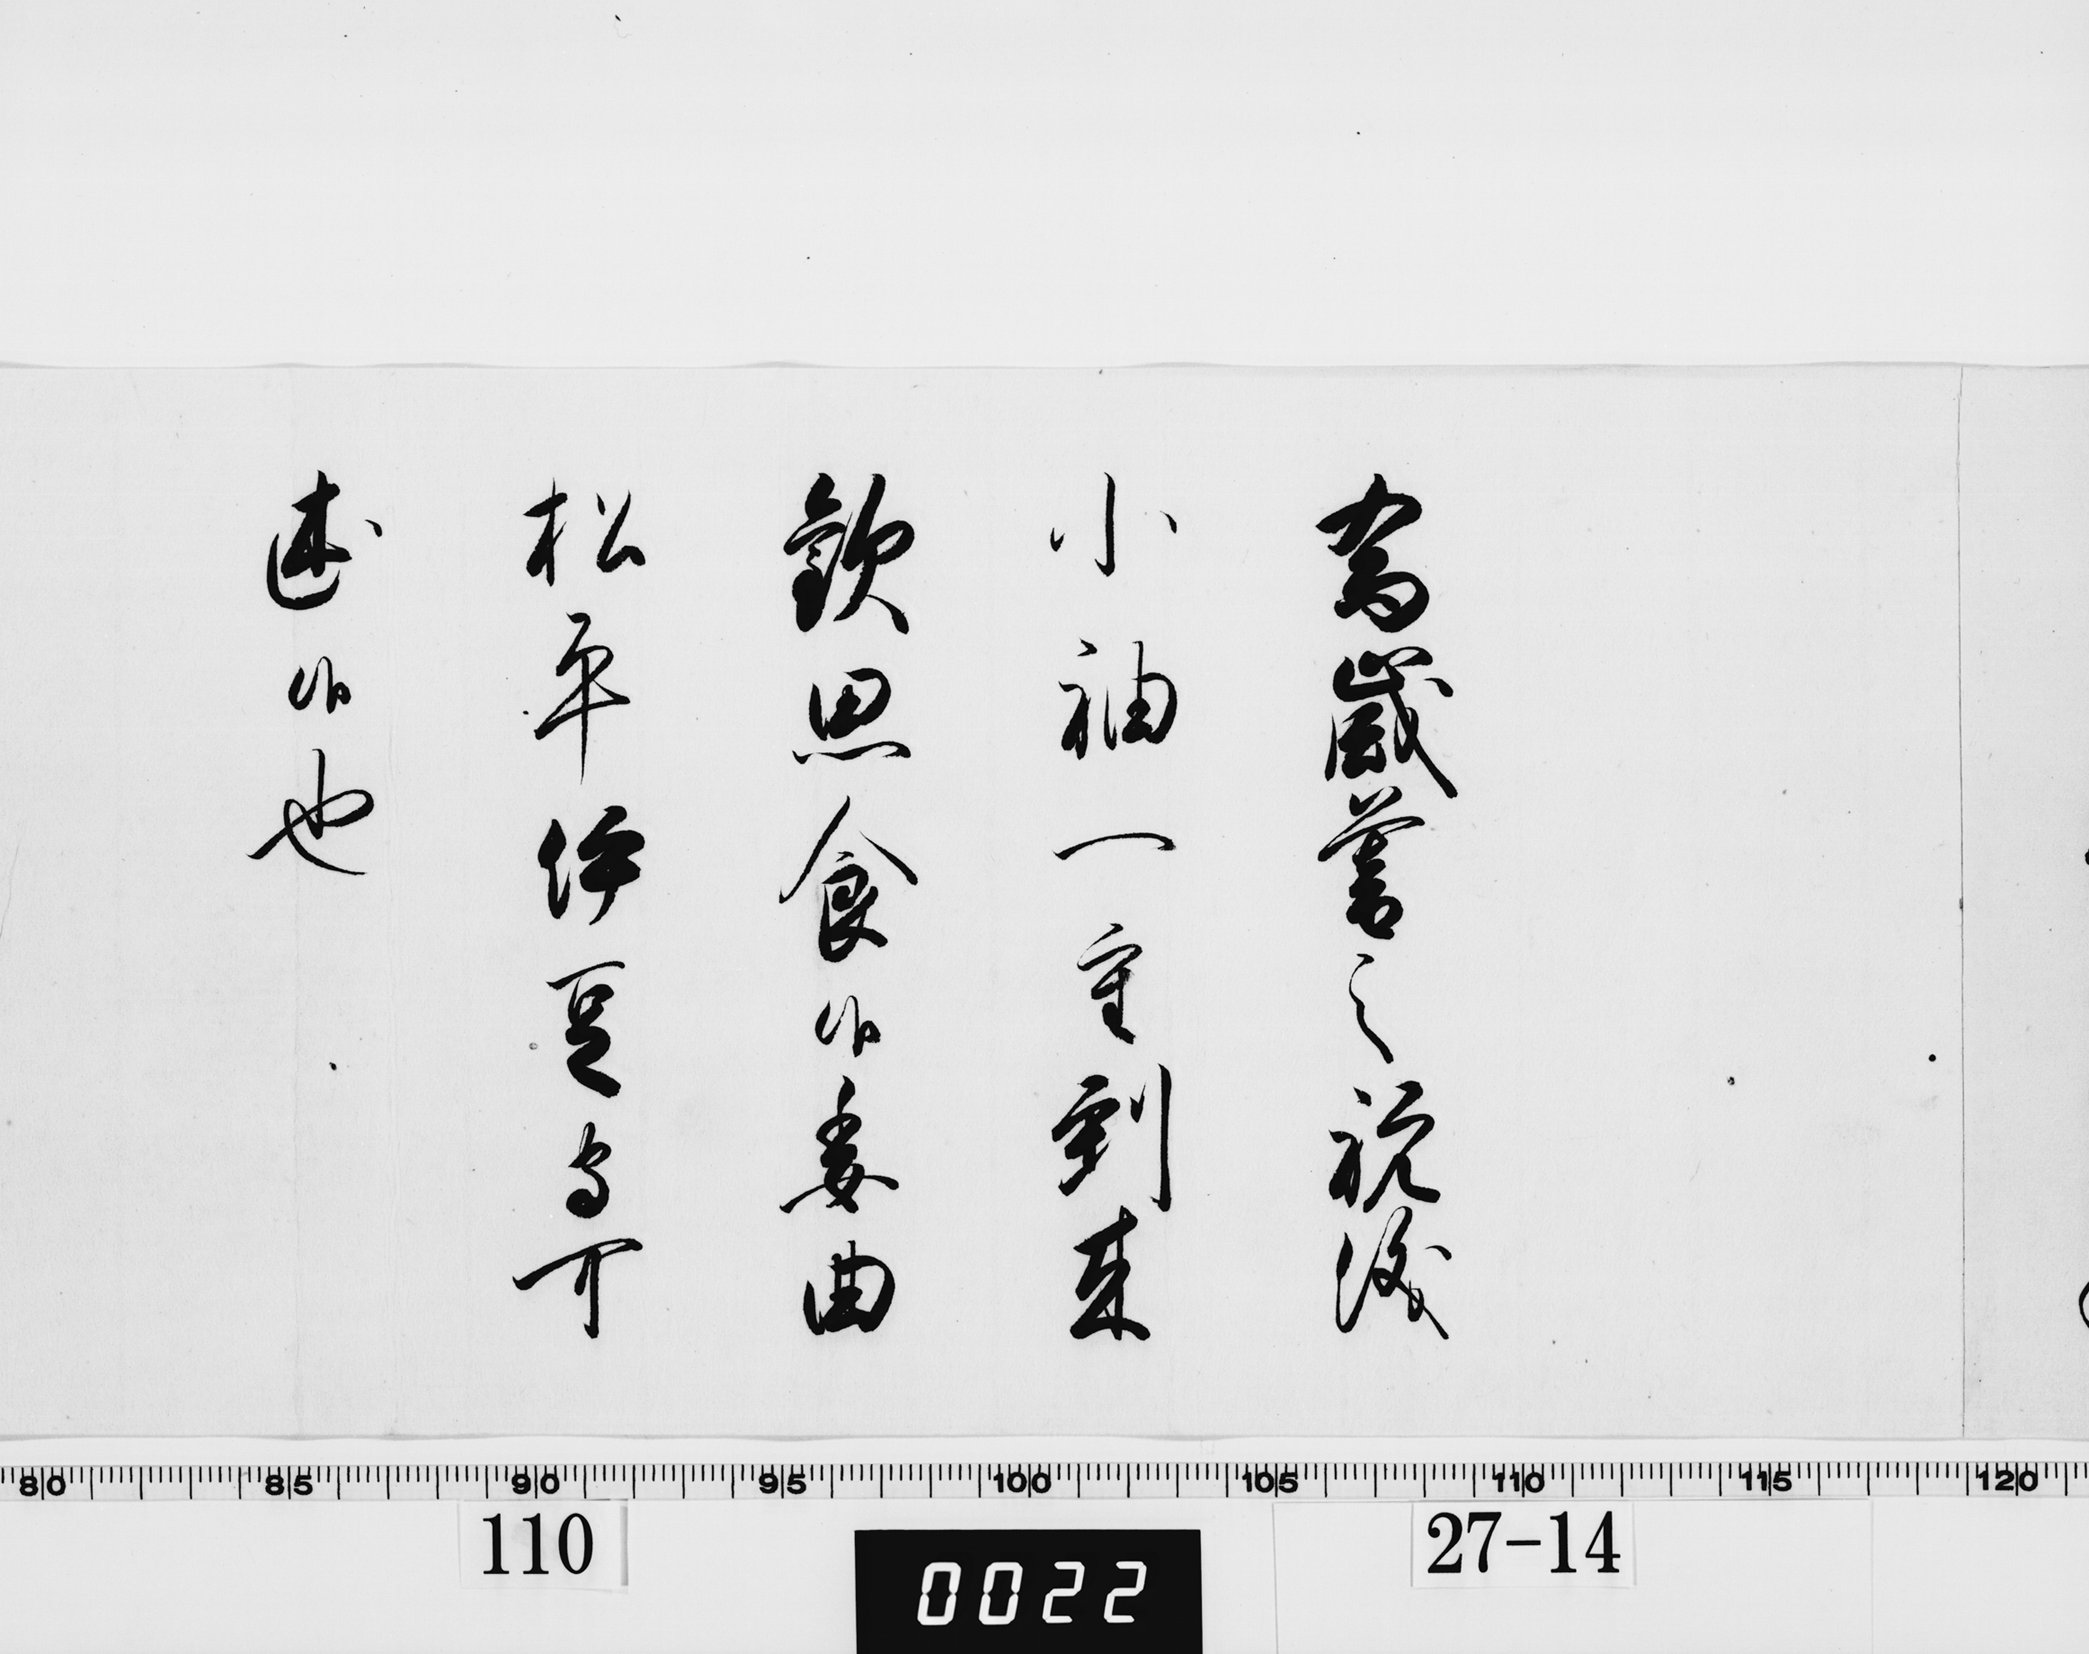 為歳暮之祝儀
小袖一重到来
歓思食候委曲
松平伊豆守可
述候也
80 85 90 95 100 105 110 115 120
110
0022
27-14